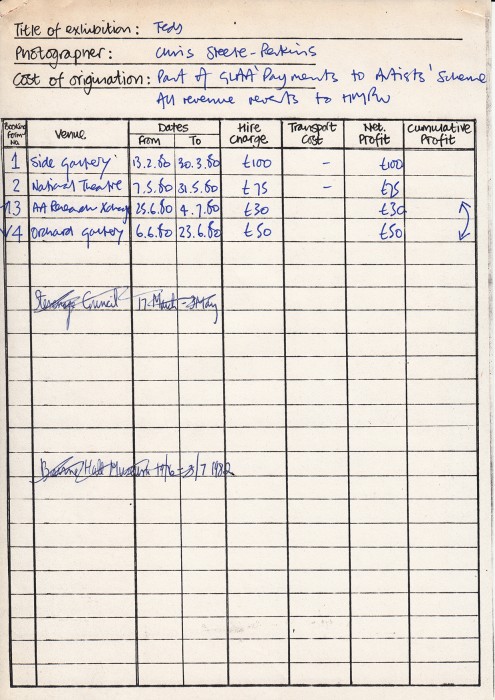 Title of exhibition: Teds
Photographer: Chris Steele-Perkins
Cost of origination: Part of GLAA 'Payments to Artists' Scheme
All revenue reverts to HMPW
Booking Form No. Venue Dates From To Hire Charge Transport Cost Net. Profit Cumulative Profit
1 Side gallery 13.2.80 30.3.80 £100 - £100
2 National Theatre 7.5.80 31.5.80 £75 - £75
3 Art Research Xchange 25.6.80 4.7.80 £30 £30
4 Orchard gallery 6.6.80 23.6.80 £50 £50
Stevenage Council 17 March - 3 May
Bourne Hall Museum 19/6 - 3/7 1982